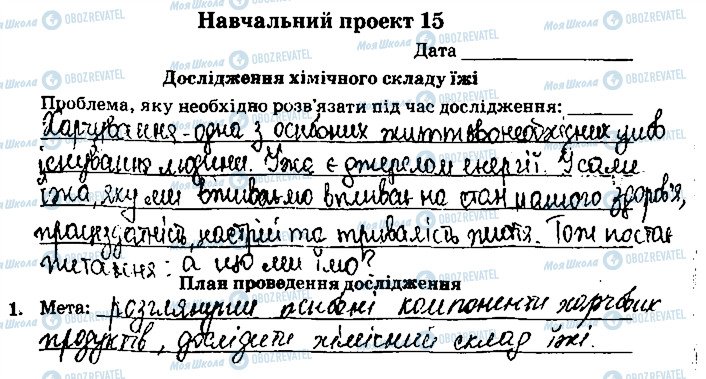 Навчальний проект 15
Дата
Дослідження хімічного складу їжі
Проблема, яку необхідно розв'язати під час дослідження:
Харчування - одна з основних життєвонеобхідних умов
існування людини. Їжа є джерелом енергії. І саме
їжа, яку ми вживаємо впливає на стан нашого здоров'я,
працездатність, настрій та тривалість життя. Тож постає
питання: а що ми їмо?
План проведення дослідження
1. Мета: розглянувши основні компоненти харчових
продуктів, дослідити хімічний склад їжі.